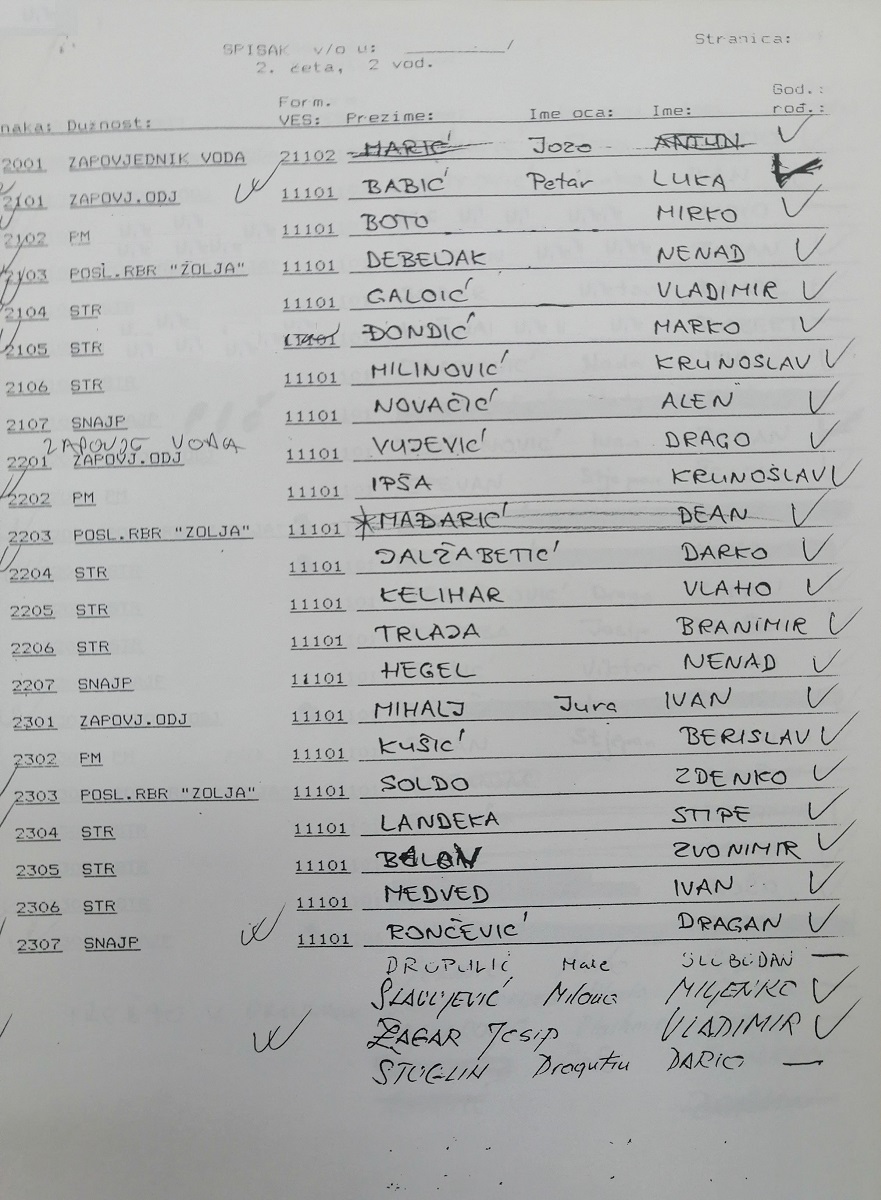 SPISAK v/o u: __________/ Stranica:
2. četa, 2 vod.
Form. God.:
naka: Dužnost: VES: Prezime: Ime oca: Ime: rođ.:
2001 ZAPOVJEDNIK VODA 21102 MARIĆ Jozo ANTUN
2101 ZAPOVJ.ODJ 11101 BABIĆ Petar LUKA
2102 PM 11101 BOTO MIRKO
2103 POSL.RBR "ZOLJA" 11101 DEBELJAK NENAD
2104 STR 11101 GALOIĆ VLADIMIR
2105 STR 11101 ĐONDIĆ MARKO
2106 STR 11101 MILINOVIĆ KRUNOSLAV
2107 SNAJP 11101 NOVAČIĆ ALEN
ZAPOVJE VODA
2201 ZAPOVJ.ODJ 11101 VUJEVIĆ DRAGO
2202 PM 11101 IPŠA KRUNOSLAV
2203 POSL.RBR "ZOLJA" 11101 MAĐARIĆ DEAN
2204 STR 11101 JALŽABETIĆ DARKO
2205 STR 11101 KELIHAR VLAHO
2206 STR 11101 TRLAJA BRANIMIR
2207 SNAJP 11101 HEGEL NENAD
2301 ZAPOVJ.ODJ 11101 MIHALJ Jura IVAN
2302 PM 11101 KUŠIĆ BERISLAV
2303 POSL.RBR "ZOLJA" 11101 SOLDO ZDENKO
2304 STR 11101 LANDEKA STIPE
2305 STR 11101 ZVONIMIR
2306 STR 11101 MEDVED IVAN
2307 SNAJP 11101 RONČEVIĆ DRAGAN
DROPULIĆ Mate SLOBODAN
SLAVUJEVIĆ MILJENKO
ŽAGAR Josip VLADIMIR
Dragutin DARIO